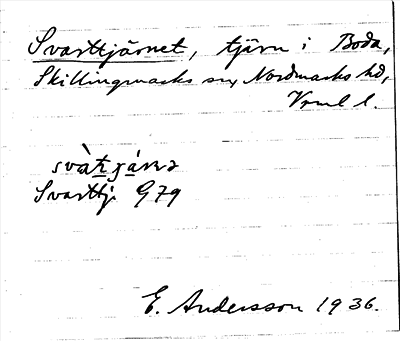 Svarttjärnet, tjärn i Boda,
Skillingmarks sn, Nordmarks hd,
Vrml l.
Svarttj G79
E. Andersson 1936.